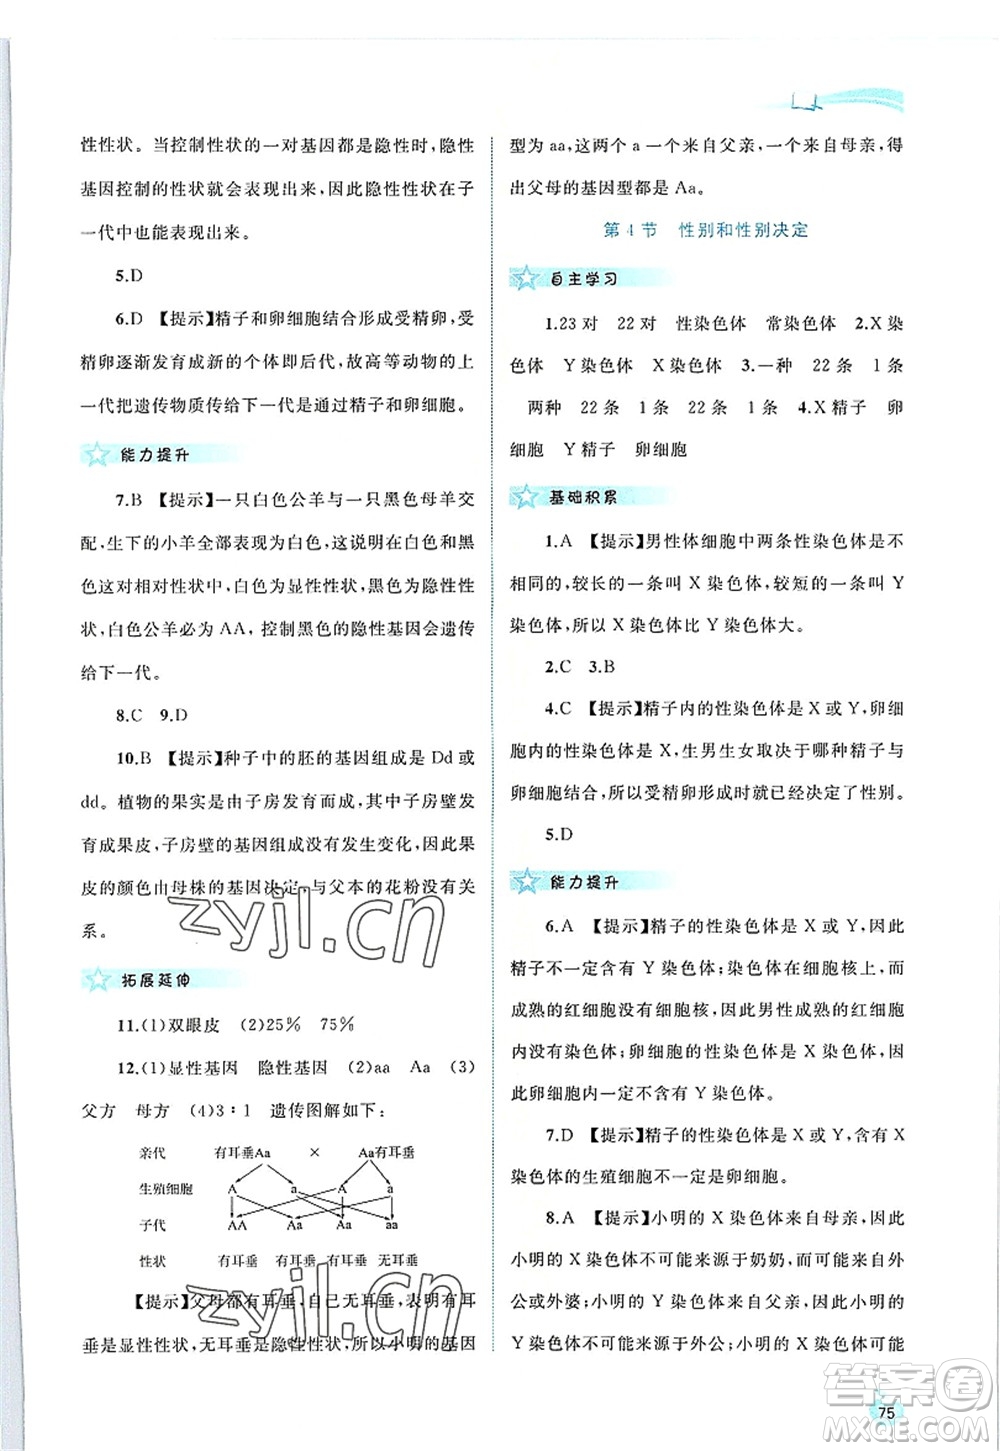 性性状。当控制性状的一对基因都是隐性时,隐性
基因控制的性状就会表现出来,因此隐性性状在子
一代中也能表现出来。
5.D
6.D 【提示】精子和卵细胞结合形成受精卵,受
精卵逐渐发育成新的个体即后代,故高等动物的上
一代把遗传物质传给下一代是通过精子和卵细胞。
能力提升
7.B 【提示】一只白色公羊与一只黑色母羊交
配,生下的小羊全部表现为白色,这说明在白色和黑
色这对相对性状中,白色为显性性状,黑色为隐性性
状,白色公羊必为 AA,控制黑色的隐性基因会遗传
给下一代。
8.C 9.D
10.B 【提示】种子中的胚的基因组成是 Dd 或
dd。植物的果实是由子房发育而成,其中子房壁发
育成果皮,子房壁的基因组成没有发生变化,因此果
皮的颜色由母株的基因决定,与父本的花粉没有关
系。
拓展延伸
11.(1)双眼皮 (2)25% 75%
12.(1)显性基因 隐性基因 (2)aa Aa (3)
父方 母方 (4)3∶1 遗传图解如下:
亲代 有耳垂Aa × Aa有耳垂
生殖细胞 A a A a
子代 AA Aa Aa aa
性状 有耳垂 有耳垂 有耳垂 无耳垂
【提示】父母都有耳垂,自己无耳垂,表明有耳
垂是显性性状,无耳垂是隐性性状,所以小明的基因
型为 aa,这两个 a 一个来自父亲,一个来自母亲,得
出父母的基因型都是 Aa。
第 4 节 性别和性别决定
自主学习
1.23 对 22 对 性染色体 常染色体 2.X 染
色体 Y 染色体 X 染色体 3.一种 22 条 1 条
两种 22 条 1 条 22 条 1 条 4.X 精子 卵
细胞 Y 精子 卵细胞
基础积累
1.A 【提示】男性体细胞中两条性染色体是不
相同的,较长的一条叫 X 染色体,较短的一条叫 Y
染色体,所以 X 染色体比 Y 染色体大。
2.C 3.B
4.C 【提示】精子内的性染色体是 X 或 Y,卵细
胞内的性染色体是 X,生男生女取决于哪种精子与
卵细胞结合,所以受精卵形成时就已经决定了性别。
5.D
能力提升
6.A 【提示】精子的性染色体是 X 或 Y,因此
精子不一定含有 Y 染色体;染色体在细胞核中,而
成熟的红细胞无细胞核,因此男性成熟的红细胞内
一定没有染色体;卵细胞的性染色体一定是 X,因
此卵细胞内一定不含有 Y 染色体。
7.D 【提示】精子的性染色体是 X 或 Y,含有 X
染色体的生殖细胞不一定是卵细胞。
8.A 【提示】小明的 X 染色体来自母亲,因此
小明的 X 染色体不可能来源于奶奶,可能来自外
公或外婆;小明的 Y 染色体来自父亲,因此小明的
Y 染色体不可能来源于外公;小明的 X 染色体可能
75
zyjl.cn
zyjl.cn
答案圈
MXQE.COM